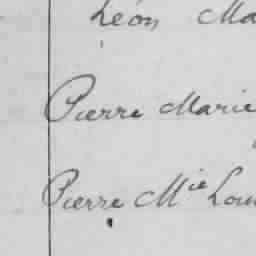 Léon Ma
Pierre Marie
Pierre Mie Lou